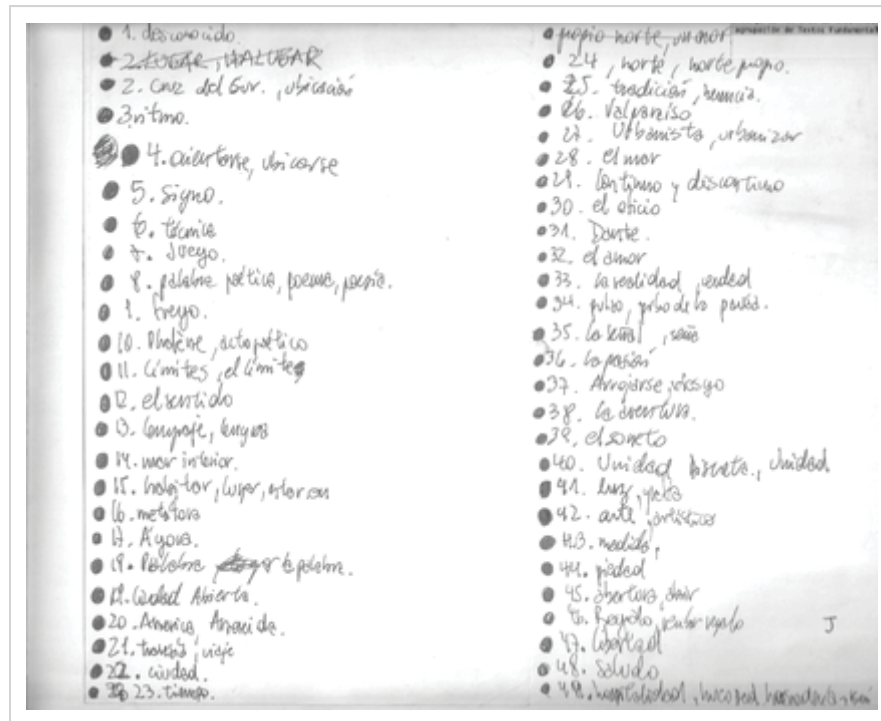 1. desconocido.
2. LUGAR, HALUGAR
2. Cruz del Sur., ubicación
3. ritmo.
4. orientarse, ubicarse
5. Signo.
6. técnica
7. Juego.
8. palabra poética, poema, poesía.
10. Phalène, acto poético
11. Límites, el límite
12. el sentido
13. lenguaje, lengua
14. mar interior.
15. habitar, lugar, estar en
16. metáfora
17. Ágora.
18. Palabra la palabra.
19. Ciudad Abierta.
20. America Amereida.
21. travesía, viaje
22. ciudad.
23. tiempo.
propio norte, un amor
agrupación de Textos Fundamental
24, norte, norte propio.
25. tradición, herencia.
26. Valparaíso
27. Urbanista, urbanizar
28. el mar
29. Continuo y discontinuo
30. el oficio
31. Dante.
32. el amor
33. la realidad, verdad
34. pulso, pulso de la
35. la señal, seña
36. la pasión
37. Arrojarse, riesgo
38. la aventura.
39. el soneto
40. Unidad discreta, Unidad.
41. luz,
42. arte, artístico
43. medida,
44. piedad
45. abertura, abrir
46. Regalo, regalo
J
47. libertad
48. Saludo
49. hospitalidad,